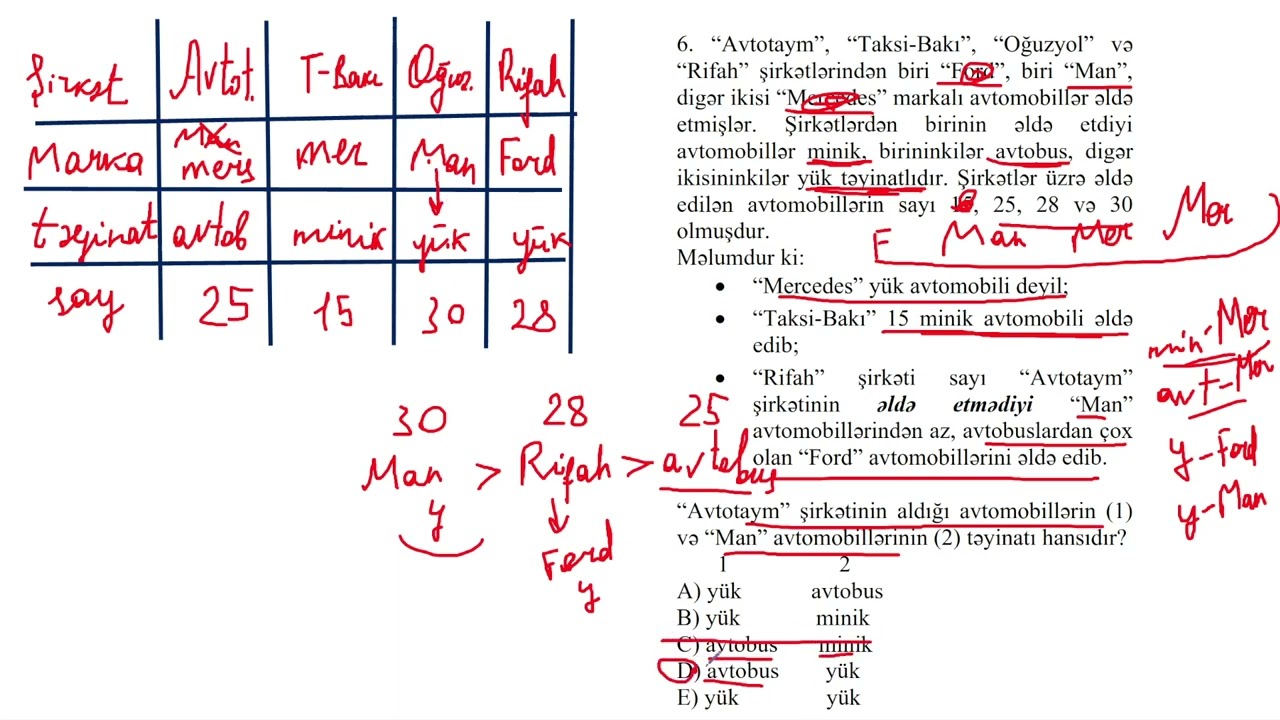 Şirkət Avtot. T-Bakı Oğuz. Rifah
Marka Man mers mer Man Ford
təyinat avtob minik yük yük
say 25 15 30 28
30 28 25
Man > Rifah > avtobus
y Ford
y
6. “Avtotaym”, “Taksi-Bakı”, “Oğuzyol” və
“Rifah” şirkətlərindən biri “Ford”, biri “Man”,
digər ikisi “Mercedes” markalı avtomobillər əldə
etmişlər. Şirkətlərdən birinin əldə etdiyi
avtomobillər minik, birininkilər avtobus, digər
ikisininkilər yük təyinatlıdır. Şirkətlər üzrə əldə
edilən avtomobillərin sayı 15, 25, 28 və 30
olmuşdur.
F Man Mer Mer
Məlumdur ki:
• “Mercedes” yük avtomobili deyil;
• “Taksi-Bakı” 15 minik avtomobili əldə
edib;
• “Rifah” şirkəti sayı “Avtotaym”
şirkətinin əldə etmədiyi “Man”
avtomobillərindən az, avtobuslardan çox
olan “Ford” avtomobillərini əldə edib.
min-Mer
avt-Mer
y-Ford
y-Man
“Avtotaym” şirkətinin aldığı avtomobillərin (1)
və “Man” avtomobillərinin (2) təyinatı hansıdır?
1 2
A) yük avtobus
B) yük minik
C) avtobus minik
D) avtobus yük
E) yük yük